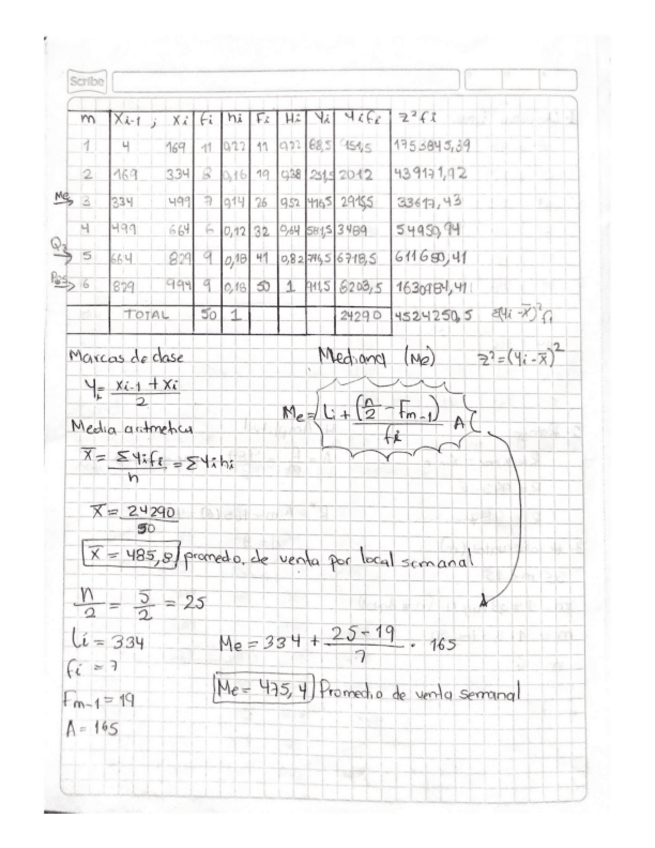 Scribe
m Xi-1 ; Xi fi hi Fi Hi Yi Yifi z²fi
1 4 169 11 0,22 11 0,22 1753845,39
2 169 334 8 0,16 19 0,38 2012 439171,92
Me 3 334 499 7 0,14 26 0,52 416,5 2915,5 33617,43
4 499 664 6 0,12 32 0,64 581,5 3489 54950,94
5 664 829 9 0,18 41 0,82 746,5 6718,5 611680,41
6 829 994 9 0,18 50 1 911,5 8203,5 1630984,41
TOTAL 50 1 24290 4524250,5 Σ(Yi-x̄)²fi
Marcas de clase Mediana (Me) z²=(Yi-x̄)²
Yi = Xi-1 + Xi / 2
Me = Li + (n/2 - Fm-1) / fi A
Media aritmetica
x̄ = ΣYifi / n = ΣYihi
x̄ = 24290 / 50
x̄ = 485,8 promedio. de venta por local semanal
n/2 = 5/2 = 25
Li = 334 Me = 334 + 25-19 / 7 · 165
fi = 7
Me = 475,4 Promedio de venta semanal
Fm-1 = 19
A = 165